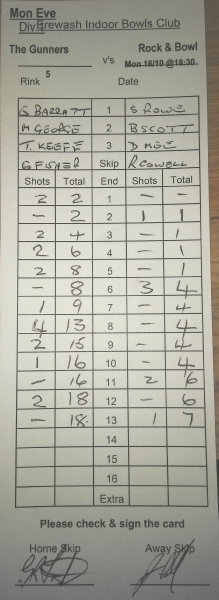 Mon Eve
Div Erewash Indoor Bowls Club
The Gunners v's Rock & Bowl
Mon 16/10 @18:30
Rink 5 Date
G BARRATT 1 S ROWE
M GEORGE 2 B SCOTT
T. KEEFE 3 D MOE
G FISHER Skip R COWELL
Shots Total End Shots Total
2 2 1 - -
- 2 2 1 1
2 4 3 - 1
2 6 4 - 1
2 8 5 - 1
- 8 6 3 4
1 9 7 - 4
4 13 8 - 4
2 15 9 - 4
1 16 10 - 4
- 16 11 2 6
2 18 12 - 6
- 18 13 1 7
14
15
16
Extra
Please check & sign the card
Home Skip Away Skip